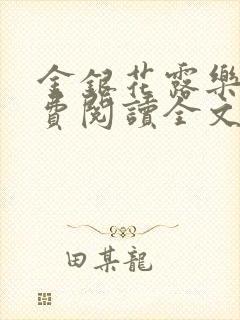 金銀花露樂
費閱讀全文
田某龍